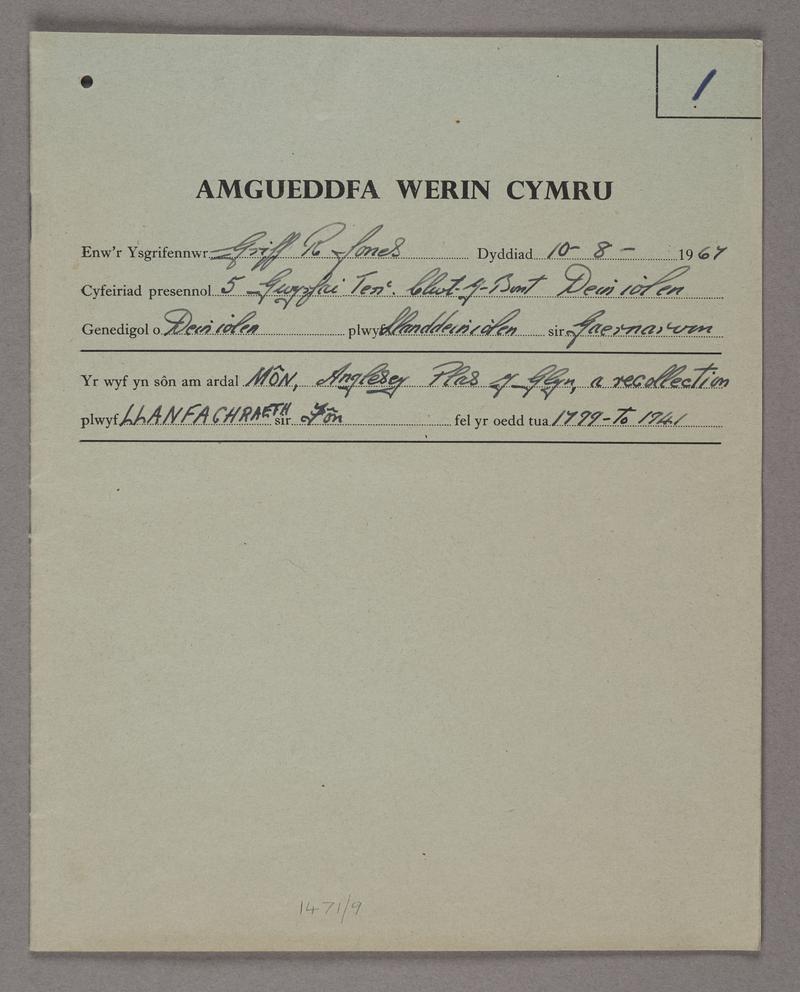 1
AMGUEDDFA WERIN CYMRU
Enw'r Ysgrifennwr Griff R Jones Dyddiad 10 - 8 - 1967
Cyfeiriad presennol 5 Gwyrfai Terr. Clwt-y-Bont Deiniolen
Genedigol o Deiniolen plwyf Llanddeiniolen sir Gaernarvon
Yr wyf yn sôn am ardal MÔN, Anglesey Plas y Glyn, a recollection
plwyf LLANFACHRAETH sir Fôn fel yr oedd tua 1799 - To 1941
1471/9